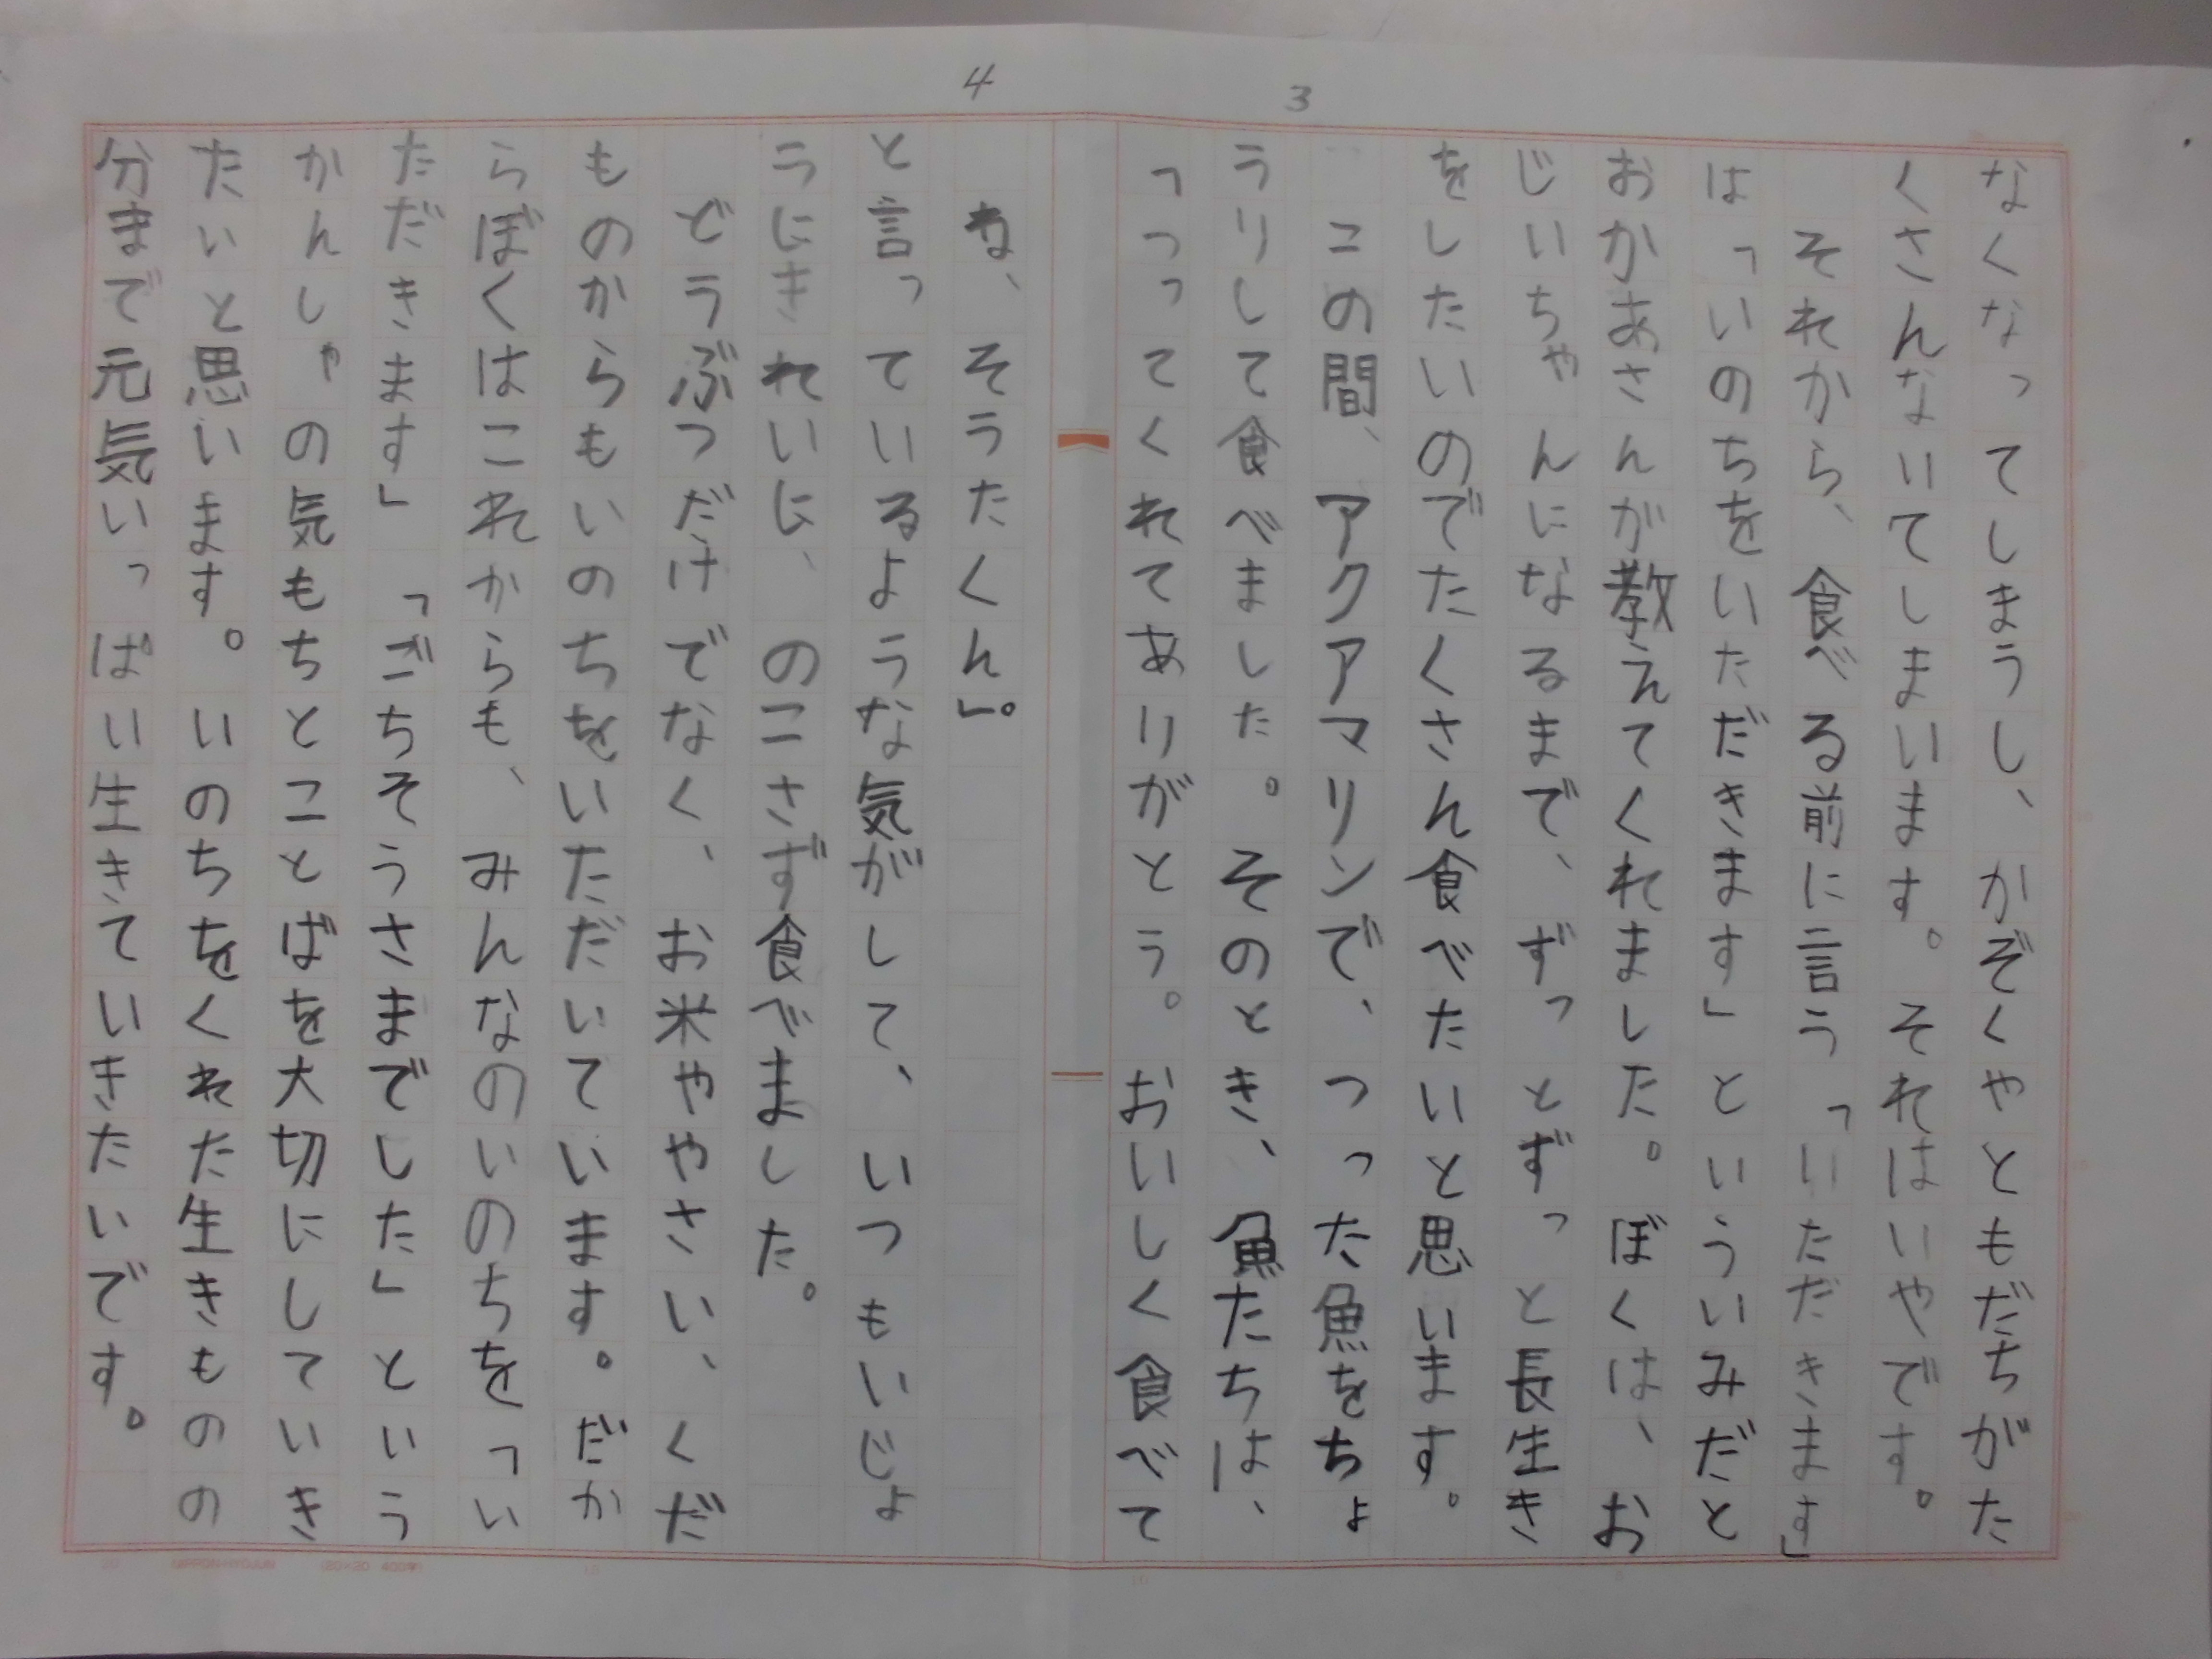 3
なくなってしまうし、かぞくやともだちがた
くさんないてしまいます。それはいやです。
それから、食べる前に言う「いただきます」
は「いのちをいただきます」といういみだと
おかあさんが教えてくれました。ぼくは、お
じいちゃんになるまで、ずっとずっと長生き
をしたいのでたくさん食べたいと思います。
この間、アクアマリンで、つった魚をちょ
うりして食べました。そのとき、魚たちは、
「つってくれてありがとう。おいしく食べて
4
ね、そうたくん」。
と言っているような気がして、いつもいじょ
うにきれいに、のこさず食べました。
どうぶつだけでなく、お米ややさい、くだ
ものからもいのちをいただいています。だか
らぼくはこれからも、みんなのいのちを「い
ただきます」「ごちそうさまでした」という
かんしゃの気もちとことばを大切にしていき
たいと思います。いのちをくれた生きものの
分まで元気いっぱい生きていきたいです。